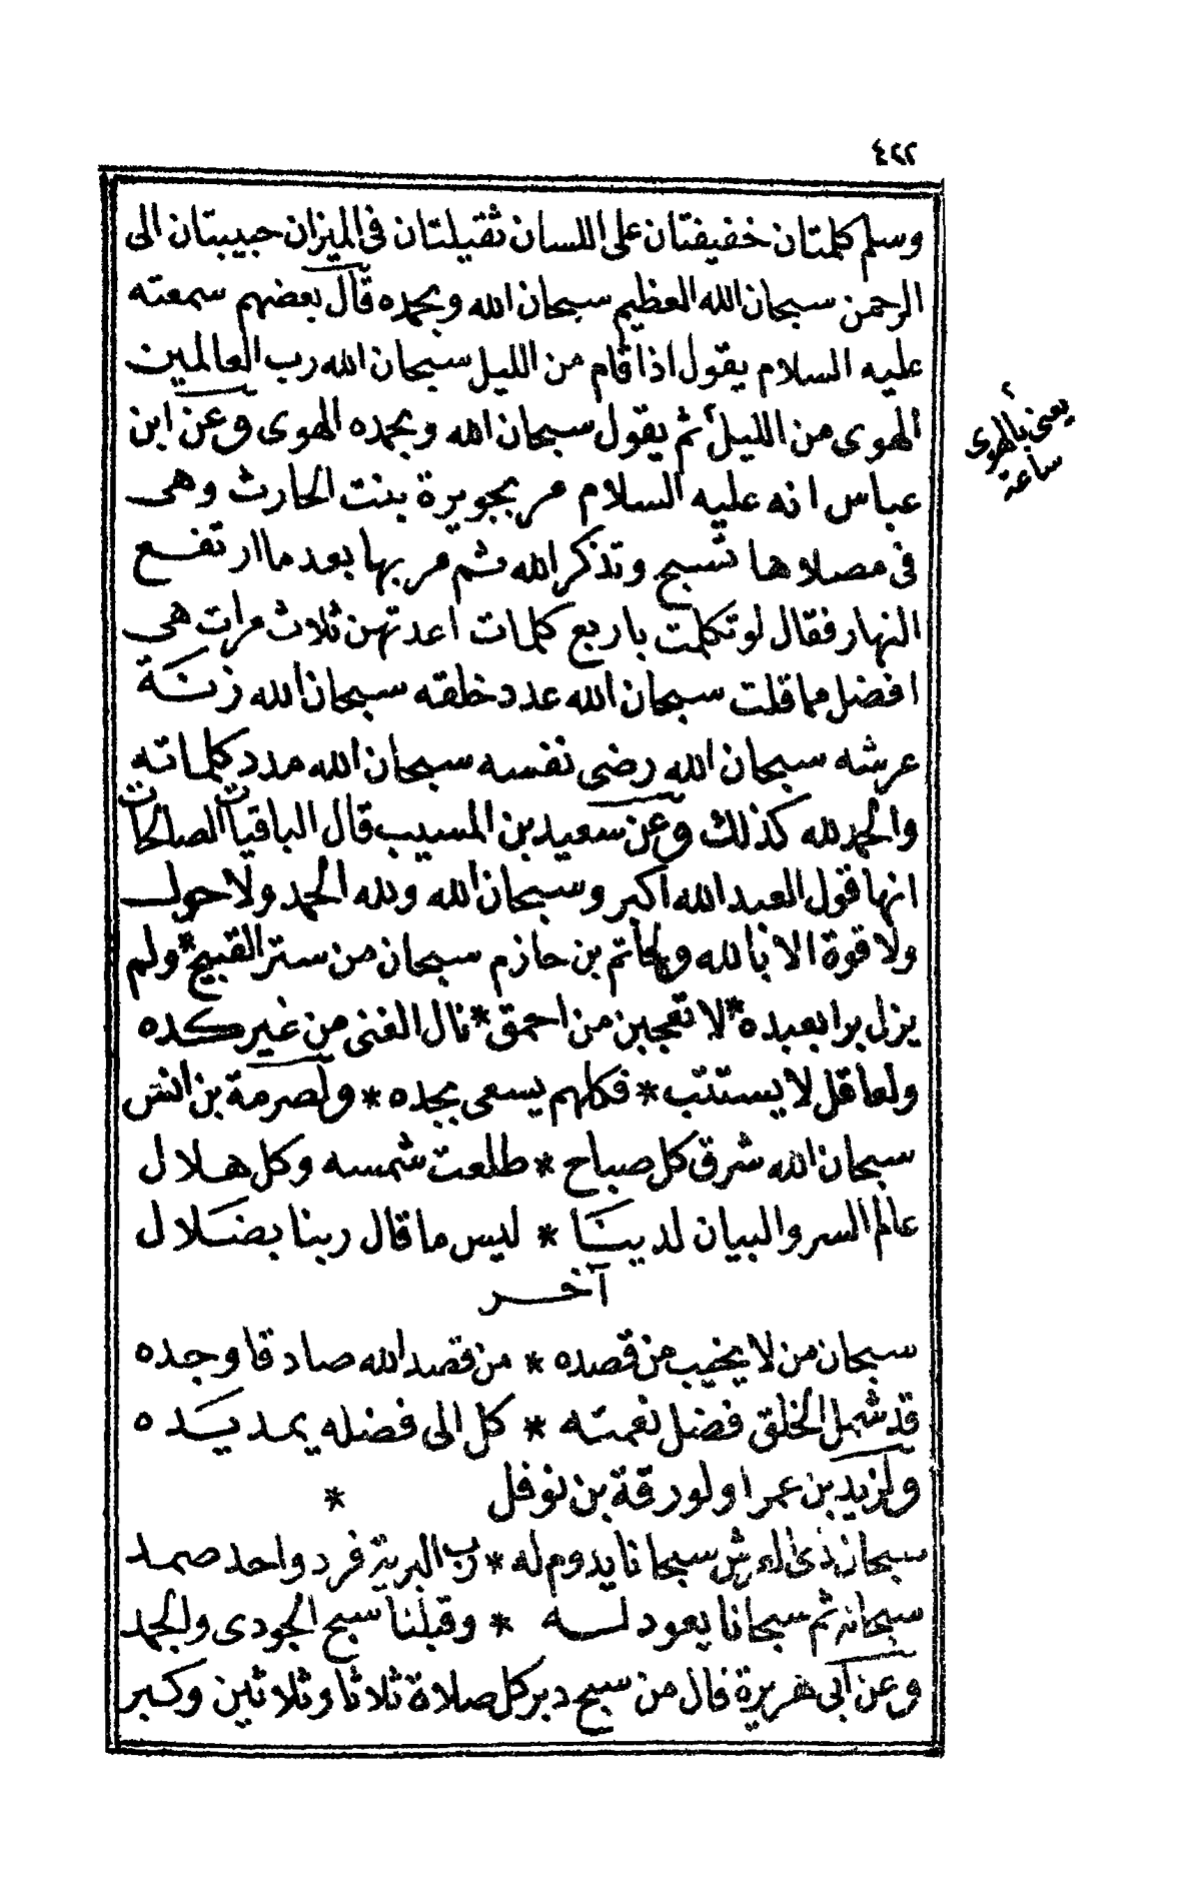 ٤٢٢
وسلم كلمتان خفيفتان على اللسان ثقيلتان فى الميزان حبيبتان الى
الرحمن سبحان الله العظيم سبحان الله وبحمده قال بعضهم سمعته
عليه السلام يقول اذا قام من الليل سبحان الله رب العالمين
الهوى من الليل ٢ ثم يقول سبحان الله وبحمده الهوى وعن ابن
عباس انه عليه السلام مر بجويرة بنت الحارث وهى
فى مصلاها تسبح وتذكر الله ثم مر بها بعد ما ارتفع
النهار فقال لو تكلمت باربع كلمات اعدتهن ثلاث مرات هى
افضل مما قلت سبحان الله عدد خلقه سبحان الله زنة
عرشه سبحان الله رضى نفسه سبحان الله مدد كلماته
والحمد لله كذلك وعن سعيد بن المسيب قال الباقيات الصالحات
انها قول العبد الله اكبر وسبحان الله ولله الحمد ولا حول
ولا قوة الا بالله ولحاتم بن حازم سبحان من ستر القبيح * ولم
يزل برا بعبده * لا تعجبن من احمق * نال الغنى من غير كده
ولعاقل لا يستتب * فكلهم يسعى بجده * ولصرمة بن انس
سبحان الله شرق كل صباح * طلعت شمسه وكل هلال
عالم السر والبيان لدينا * ليس ما قال ربنا بضلال
آخر
سبحان من لا يخيب من قصده * من قصد الله صادقا وجده
قد شمل الخلق فضل نعمته * كل الى فضله يمد يده
ولزيد بن عمر او لورقة بن نوفل *
سبحان ذى العرش سبحانا يدوم له * رب البرية فرد واحد صمد
سبحانه ثم سبحانا يعود له * وقبلنا سبح الجودى والجمد
وعن ابى هريرة قال من سبح دبر كل صلاة ثلاثا وثلاثين وكبر
٢
يعنى بالهوى
ساعة